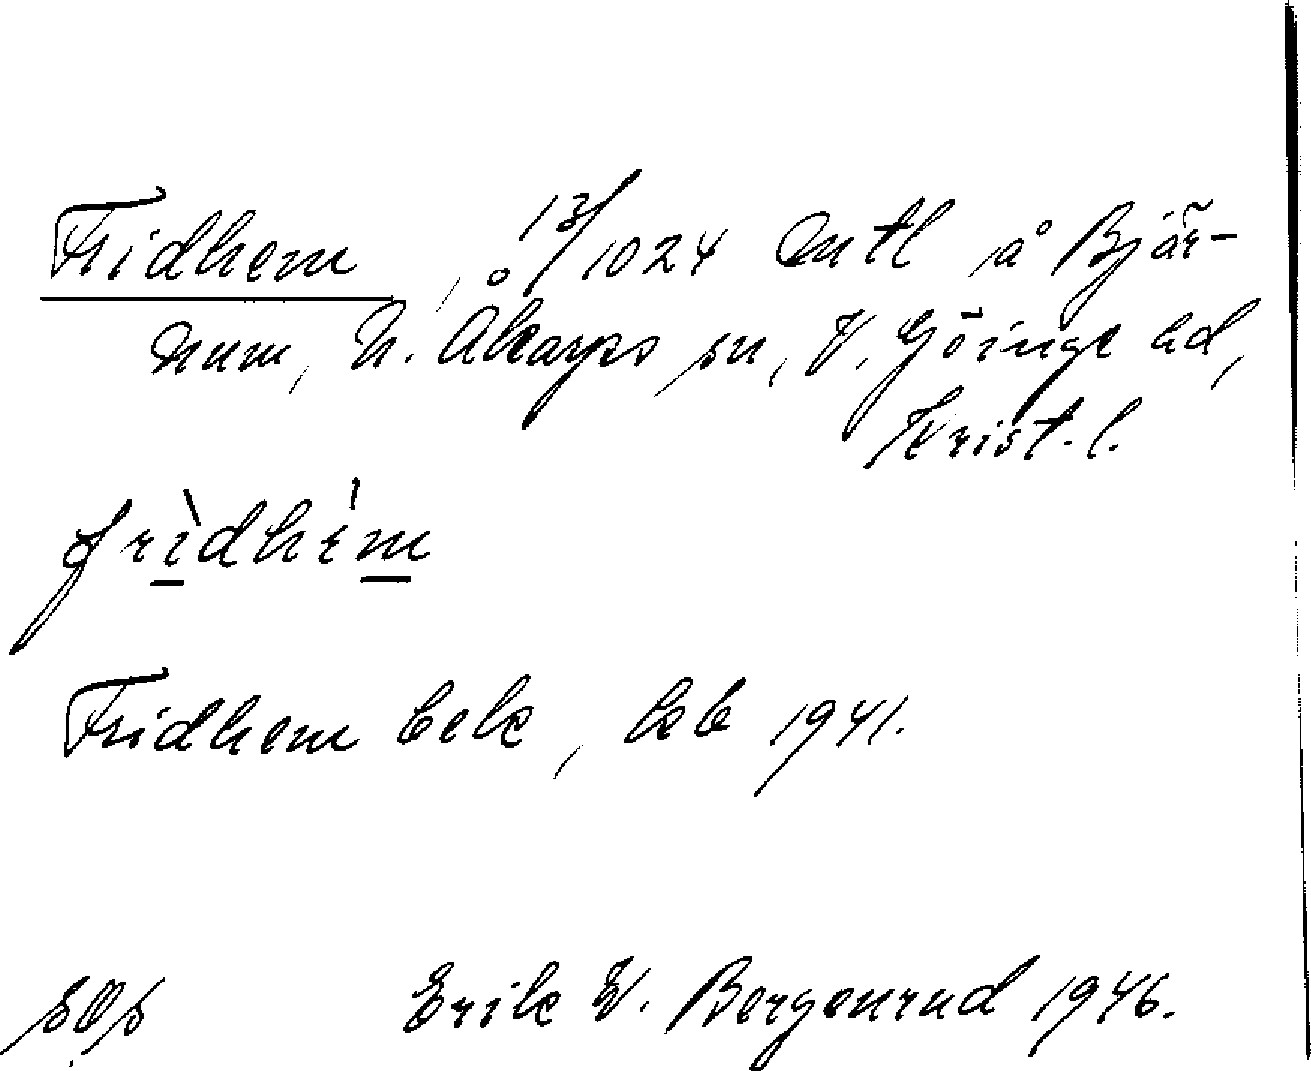 Fridhem, 13/1024 mtl å Bjär-
num, N. Åkarps sn, V. Göinge hd,
Krist. l.
frìdhém
Fridhem bek, kb 1941.
Erik W. Bergenrud 1946.